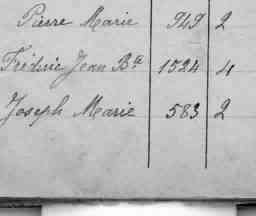 Pierre Marie 949 2
Fréderic Jean Bte 1524 4
Joseph Marie 583 2